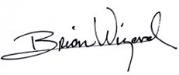 Brian Wizard